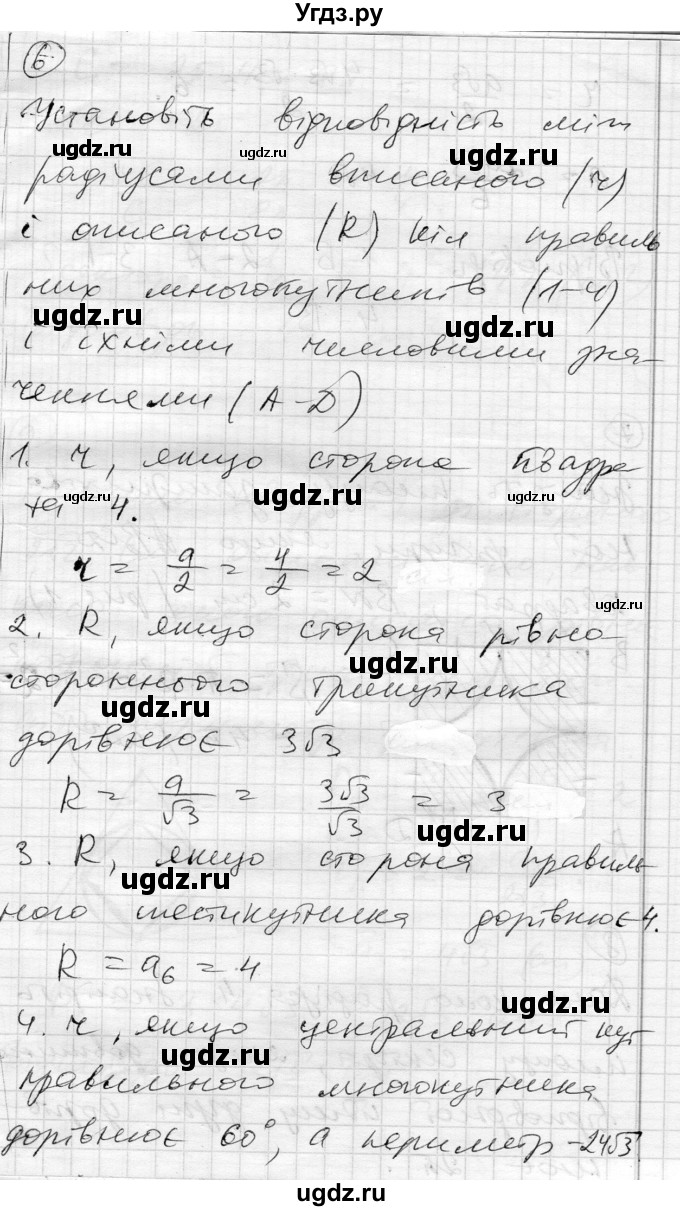 Угдз.ру
6
Установіть відповідність між
радіусами вписаного (r)
і описаного (R) кіл правиль
них многокутників (1-4)
і їхніми числовими зна-
ченнями (А-Д)
1. r, якщо сторона квадра
та 4.
r = a/2 = 4/2 = 2
2. R, якщо сторона рівно-
стороннього трикутника
дорівнює 3√3
R = a/√3 = 3√3/√3 = 3
3. R, якщо сторона правиль
ного шестикутника дорівнює 4.
R = a₆ = 4
4. r, якщо центральний кут
правильного многокутника
дорівнює 60°, а периметр -24√3
ugdz.ru